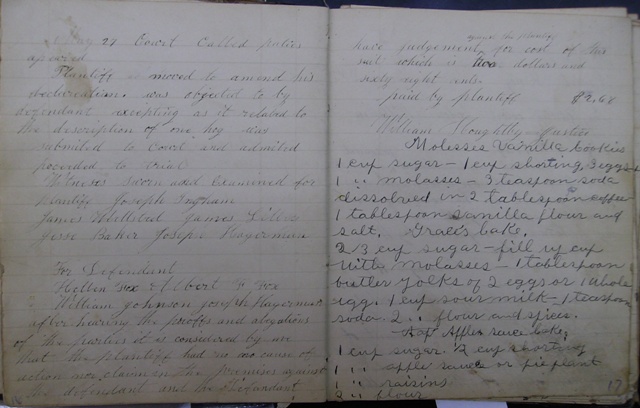 27 Court Called parties
apeared
Plantiff moved to amend his
declaration. was objected to by
defendant excepting as it related to
the description of one hog was
submited to Court and admited
proceded to trial
Witness Sworn and Examined for
plantiff Joseph Ingham
James Hellsted James
Jesse Baker Joseph Hagerman
For Defendant
Hellen Fox Elbert F Fox
William Johnson Joseph Hagerman
after hearing the prooffs and
of the parties it is considered by
that the plantiff had no cause of
action nor claim in the premises against
the defendant and the Defendant
against the plantiff
have judgement for cost of this
suit which is two dollars and
sixty eight cents
paid by plantiff $2.68
William Justice
Molasses Vanilla Cookies
1 cup sugar - 1 cup shorting, 3 eggs
1 " molasses - 3 teaspoon soda
dissolved in 2 tablespoon coffee
1 tablespoon vanilla flour and
salt. Grace's cake.
2/3 cup sugar - fill up cup
with molasses - 1 tablespoon
butter yolks of 2 eggs or 1 whole
egg. 1 cup sour milk - 1 teaspoon
soda. 2 " flour and spices.
Apple sauce cake,
1 cup sugar 1/2 cup shorting
1 " apple sauce or pie plant
1 " raisins
2 " flour
17